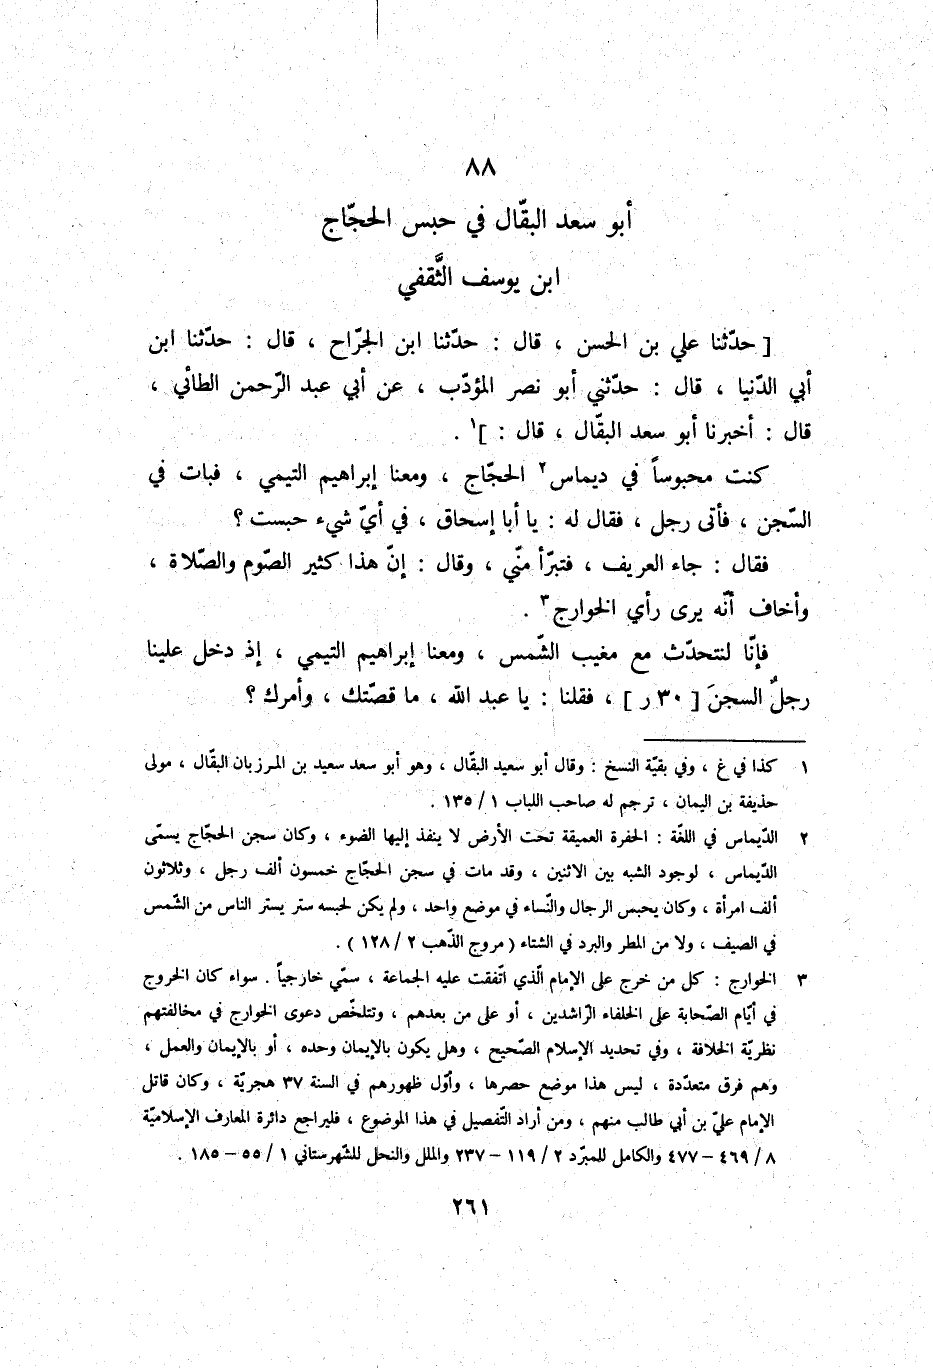 ٨٨
أبو سعد البقّال في حبس الحجّاج
ابن يوسف الثَّقفي
[ حدّثنا علي بن الحسن ، قال : حدّثنا ابن الجرّاح ، قال : حدّثنا ابن
أبي الدّنيا ، قال : حدّثني أبو نصر المؤدّب ، عن أبي عبد الرّحمن الطائي ،
قال : أخبرنا أبو سعد البقّال ، قال : ]١ .
كنت محبوساً في ديماس٢ الحجّاج ، ومعنا إبراهيم التيمي ، فبات في
السّجن ، فأتى رجل ، فقال له : يا أبا إسحاق ، في أيّ شيء حبست ؟
فقال : جاء العريف ، فتبرّأ منّي ، وقال : إنّ هذا كثير الصّوم والصّلاة ،
وأخاف أنّه يرى رأي الخوارج٣ .
فإنّا لنتحدّث مع مغيب الشّمس ، ومعنا إبراهيم التيمي ، إذ دخل علينا
رجلٌ السجنَ [ ٣٠ ر ] ، فقلنا : يا عبد اللّه ، ما قصّتك ، وأمرك ؟
١ كذا في غ ، وفي بقيّة النسخ : وقال أبو سعيد البقّال ، وهو أبو سعد سعيد بن المرزبان البقّال ، مولى
حذيفة بن اليمان ، ترجم له صاحب اللباب ١ / ١٣٥ .
٢ الدّيماس في اللغّة : الحفرة العميقة تحت الأرض لا ينفذ إليها الضوء ، وكان سجن الحجّاج يسمّى
الدّيماس ، لوجود الشبه بين الاثنين ، وقد مات في سجن الحجّاج خمسون ألف رجل ، وثلاثون
ألف امرأة ، وكان يحبس الرجال والنّساء في موضع واحد ، ولم يكن لحبسه ستر يستر الناس من الشّمس
في الصيف ، ولا من المطر والبرد في الشتاء ( مروج الذّهب ٢ / ١٢٨ ) .
٣ الخوارج : كل من خرج على الإمام الّذي اتّفقت عليه الجماعة ، سمّي خارجياً . سواء كان الخروج
في أيّام الصّحابة على الخلفاء الرّاشدين ، أو على من بعدهم ، وتتلخّص دعوى الخوارج في مخالفتهم
نظريّة الخلافة ، وفي تحديد الإسلام الصّحيح ، وهل يكون بالإيمان وحده ، أو بالإيمان والعمل ،
وهم فرق متعدّدة ، ليس هذا موضع حصرها ، وأوّل ظهورهم في السنة ٣٧ هجريّة ، وكان قاتل
الإمام عليّ بن أبي طالب منهم ، ومن أراد التّفصيل في هذا الموضوع ، فليراجع دائرة المعارف الإسلاميّة
٨ / ٤٦٩ – ٤٧٧ والكامل للمبرّد ٢ / ١١٩ – ٢٣٧ والملل والنحل للشّهرستاني ١ / ٥٥ – ١٨٥ .
٢٦١